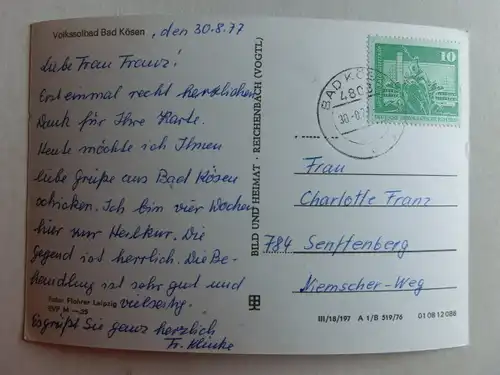 Volkssolbad Bad Kösen, den 30.8.77
Liebe Frau Franz!
Erst einmal recht herzlichen
Dank für Ihre Karte.
Heute möchte ich Ihnen
liebe Grüße aus Bad Kösen
schicken. Ich bin vier Wochen
hier zur Heilkur. Die
Gegend ist herrlich. Die Be-
handlung ist sehr gut und
vielseitig.
Foto: Flohrer Leipzig
EVP M —,25
Es grüßt Sie ganz herzlich
Fr. Klinke
BILD UND HEIMAT · REICHENBACH (VOGTL)
BAD KÖ
4803
10
Frau
Charlotte Franz
784 Senftenberg
Memscher-Weg
III/18/197 A 1/B 519/76 01 08 12 088